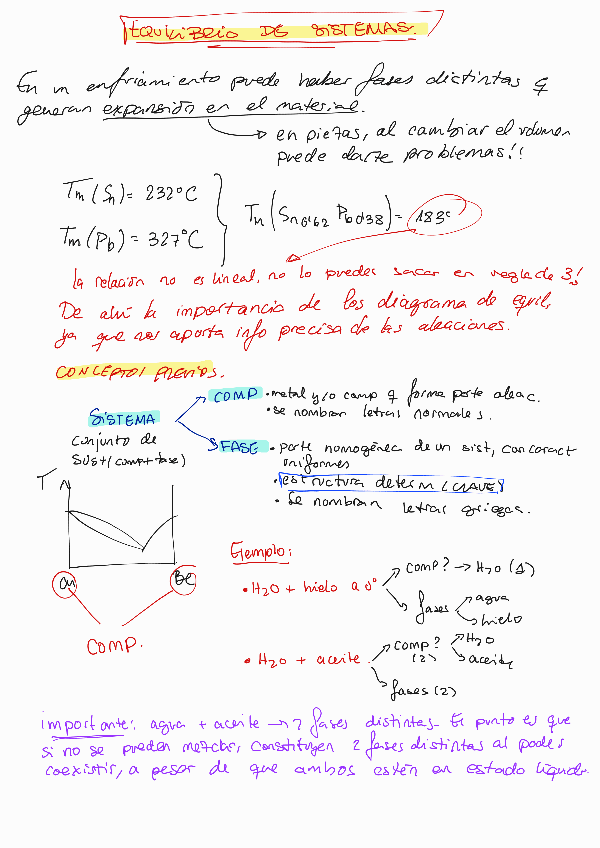 EQUILIBRIO DE SISTEMAS.
En un enfriamiento puede haber fases distintas q
generan expansión en el material.
en piezas, al cambiar el volumen
puede darte problemas!!
Tm (Sn) = 232ºC
Tm (Pb) = 327ºC
Tm (Sn0'62 Pb0'38) = 183º
la relación no es lineal, no lo puedes sacar en regla de 3!
De ahí la importancia de los diagrama de equil,
ya que nos aporta info precisa de las aleaciones.
CONCEPTOS PREVIOS.
SISTEMA
conjunto de
sust (comp+fase)
COMP • metal y/o comp q forma parte aleac.
• se nombran letras normales.
FASE • parte homogénea de un sist, con caract
uniformes
• estructura determ (CLAVE)
• Se nombran letras griegas.
T
Be
COMP.
Ejemplo:
• H2O + hielo a 0º
comp? → H2O (1)
fases
agua
hielo
• H2O + aceite
comp? (2)
H2O
aceite
fases (2)
importante: agua + aceite → 2 fases distintas. El punto es que
si no se pueden mezclar, constituyen 2 fases distintas al poder
coexistir, a pesar de que ambos estén en estado líquido.